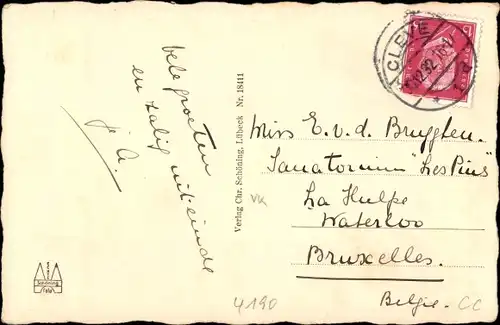 CLEVE
Miss E. v. d. Bruggten.
Sanatorium "Les Pins"
La Hulpe
Waterloo
Bruxelles.
Belgie
vele groeten
en zalig uiteinde
J. A.
Verlag Chr. Schöning, Lübeck Nr. 18411
Schöning
4190
CC
VK